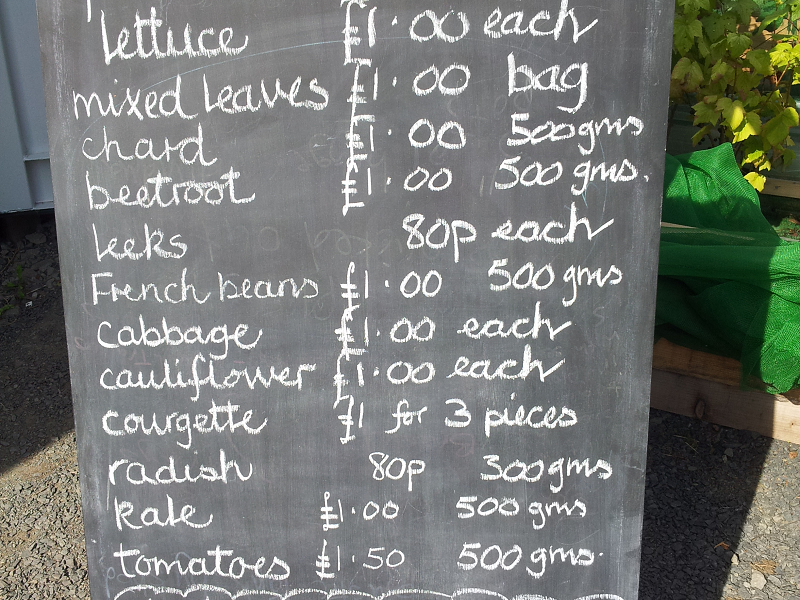 lettuce £1.00 each
mixed leaves £1.00 bag
chard £1.00 500gms
beetroot £1.00 500 gms.
leeks 80p each
French beans £1.00 500 gms
cabbage £1.00 each
cauliflower £1.00 each
courgette £1 for 3 pieces
radish 80p 300gms
kale £1.00 500 gms
tomatoes £1.50 500 gms.